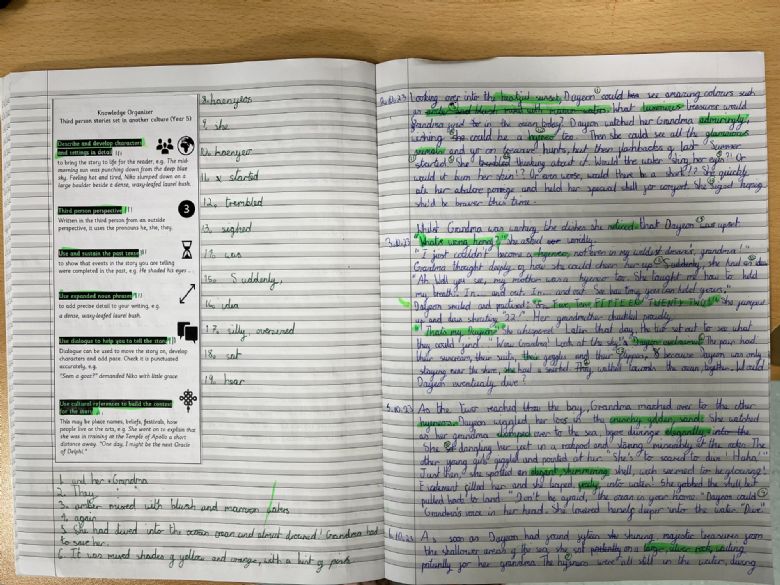 Knowledge Organiser
Third person stories set in another culture (Year 5)
Describe and develop characters
and settings in detail
to bring the story to life for the reader, e.g. The mid-
morning sun was punching down from the deep blue
sky. Feeling hot and tired, Niko slumped down on a
large boulder beside a dense, waxy-leafed laurel bush.
Third person perspective
Written in the third person from an outside
perspective, it uses the pronouns he, she, they.
3
Use and sustain the past tense
to show that events in the story you are telling
were completed in the past, e.g. He shaded his eyes...
Use expanded noun phrases
to add precise detail to your writing, e.g.
a dense, waxy-leafed laurel bush.
Use dialogue to help you to tell the story
Dialogue can be used to move the story on, develop
characters and add pace. Check it is punctuated
accurately, e.g.
"Seen a goat?" demanded Niko with little grace
Use cultural references to build the context
for the story
This may be place names, beliefs, festivals, how
people live or the arts, e.g. She went on to explain that
she was in training at the Temple of Apollo a short
distance away. "One day, I might be the next Oracle
of Delphi."
8. haenyeos
9. she
10. haenyeo
11. x started
12. trembled
13. sighed
17. was
15. Suddenly,
16. idea
17. silly,
18. sat
19. hear
1. and her Grandma
2. They
3. amber mixed with blush and maroon
4. again
5. She had dived into the ocean and almost drowned! Grandma had
to save her.
6. It was mixed shades of yellow and orange, with a hint of pink
Looking over into the sunset, Dayeon could see amazing colours such
as What treasures would
Grandma find in the ocean today? Dayeon watched her Grandma admiringly,
wishing she could be a too. Then she could see all the glamorous
and go on treasure hunts, but then flashbacks of last Summer
started. She thinking about it. Would the water sting her eyes?! Or
would it burn her skin!? Or even worse, would there be a shark!? She quickly
ate her abalone porridge and held her special shell for comfort. She hoping
she'd be braver this time.
Whilst Grandma was washing the dishes she noticed that Dayeon was upset.
3.10.23
"What's wrong honey?" she asked
"I just couldn't become a not even in my wildest dreams, grandma!"
Grandma thought deeply of how she could cheer her up. Suddenly, she had
"Ah. Well you see, my mother was a too. She taught me how to hold
my breath. In... and out. In... and out. See how long you can hold yours."
Dayeon smiled and FIFTEEN TWENTY TWO!" She jumped
up and down shouting "22!" Her grandmother chuckled proudly.
"That's my Dayeon" she whispered. Later that day, the two set out to see what
they could find. "Wow Grandma! Look at the sky" Dayeon exclaimed. The pair had
their sunscream, their suits, their goggles and their flippers, because dayeon was only
staying near the shore, she had a They walked towards the ocean, together. Would
Dayeon eventually dive?
5.10.23
As the two reached the bay, Grandma marched over to the other
Dayeon wiggled her toes in the crunchy golden, sand. She watched
as her grandma over to the sea, before diving elegantly into the
She sat dangling her feet in a rockpool and staring at the water. The
other young girls giggled and pointed at her. "She's to scared to dive! Haha!"
Just then, she spotted an elegant, shimmering shell, wich seemed to be glowing!
Excitement filled her and she leaped into water! She grabbed the shell, but
pulled back to land. "Don't be afraid, the ocean is your home." Dayeon could
Grandma's voice in her head. She lowered herself deeper into the water. "Dive."
6.10.23
As soon as Dayeon had found she shining, majestic treasures from
the shallower areas of the sea, she sat on a large, silver rock, waiting
patiently for her grandma. The were all still in the water, diving